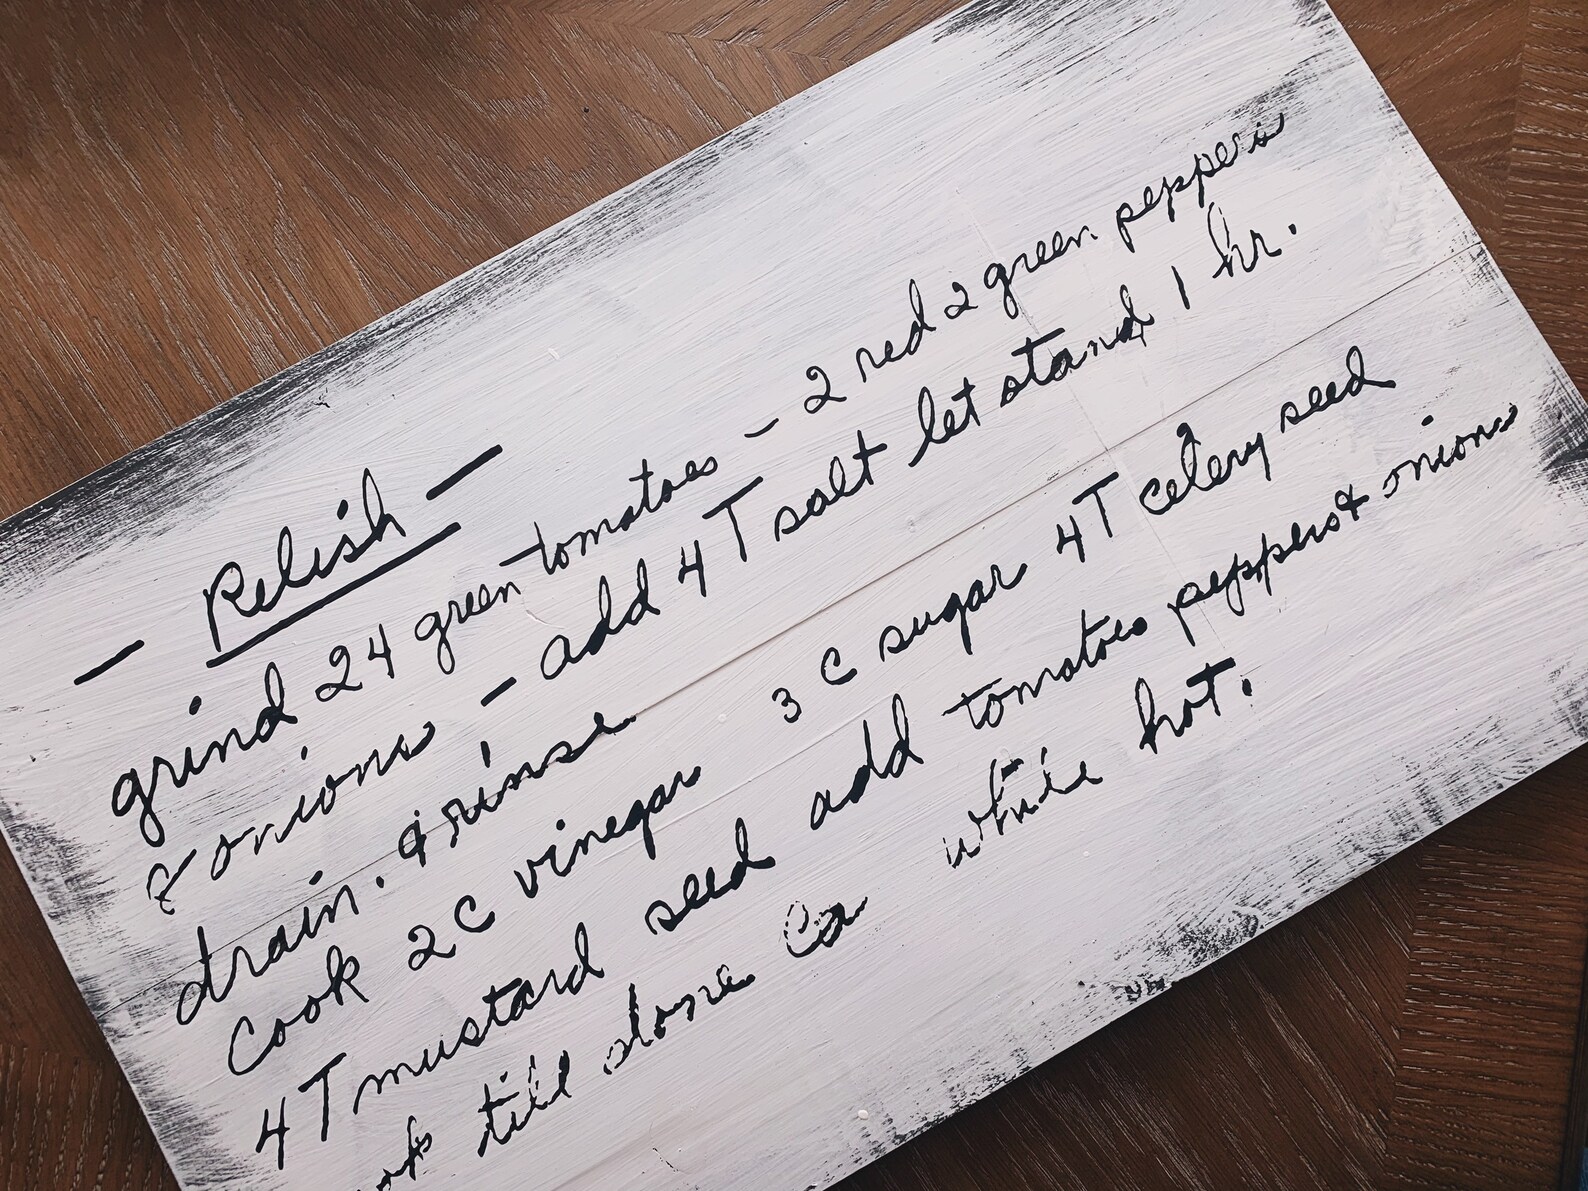 - Relish -
grind 24 green tomatoes - 2 red 2 green peppers
8 onions - add 4 T salt let stand 1 hr.
drain. & rinse
Cook 2 C vinegar 3 C sugar 4T celery seed
4T mustard seed add tomatoes peppers & onions
till done Ca while hot.